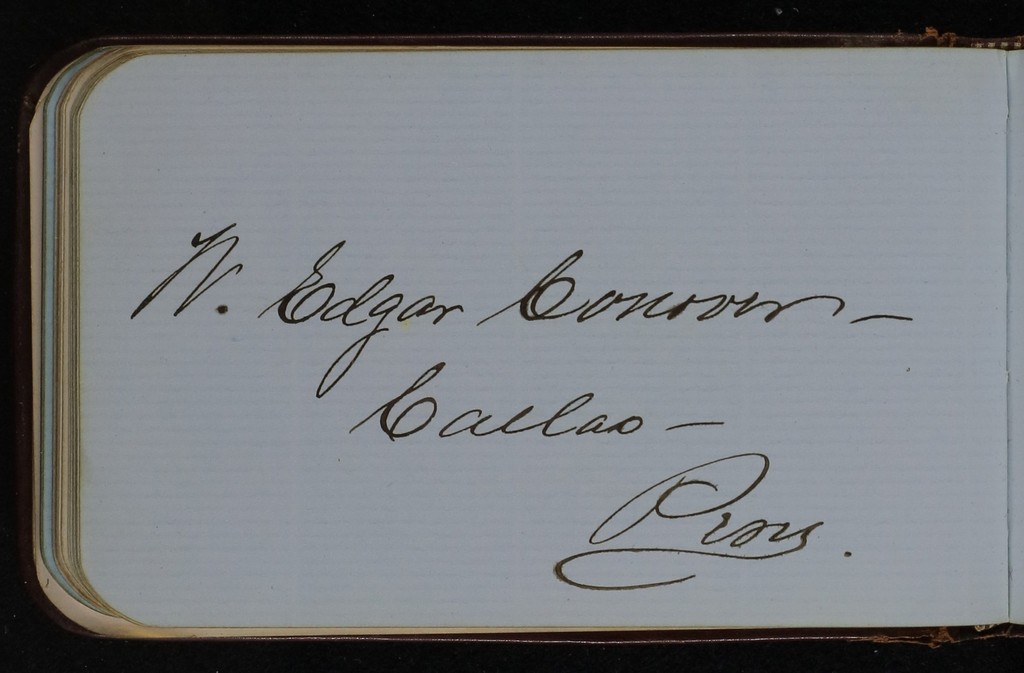 W. Edgar Conover –
Callao –
Peru.